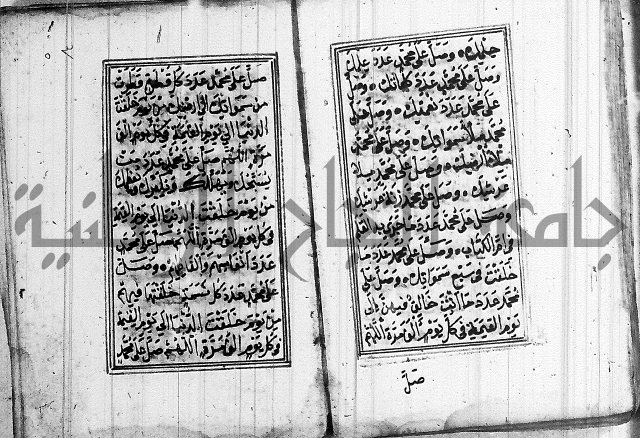 حلمك وصل على محمد عدد علمك
وصل على محمد عدد كلماتك وصل
على محمد عدد نعمتك وصل على
محمد ملأ سمواتك وصل على محمد
ملأ ارضك وصل على محمد ملأ
عرشك وصل على محمد زنة عرشك
وصل على محمد عدد ما جرى به القلم
في ام الكتاب وصل على محمد عدد ما
خلقت في سبع سمواتك وصل على
محمد عدد ما انت خالق فيهن الى
يوم القيمة في كل يوم الف مرة اللهم
صل
صل على محمد عدد كل قطرة قطرت
من سمواتك الى ارضك من يوم خلقت
الدنيا الى يوم القيمة في كل يوم الف
مرة اللهم صل على محمد عدد من
يسبحك ويهللك ويكبرك ويعظمك
من يوم خلقت الدنيا الى يوم القيمة
في كل يوم الف مرة اللهم صل على محمد
عدد انفاسهم والفاظهم وصل
على محمد عدد كل نسمة خلقتها فيهم
من يوم خلقت الدنيا الى يوم القيمة
في كل يوم الف مرة اللهم صل على محمد
جامعة النجاح الوطنية